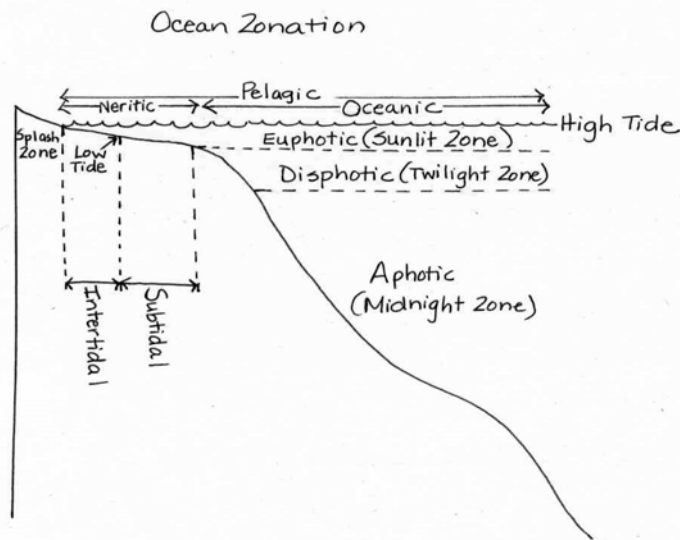 Ocean Zonation
Pelagic
Neritic
Oceanic
High Tide
Splash
Zone
Low
Tide
Euphotic (Sunlit Zone)
Disphotic (Twilight Zone)
Aphotic
(Midnight Zone)
Intertidal
Subtidal